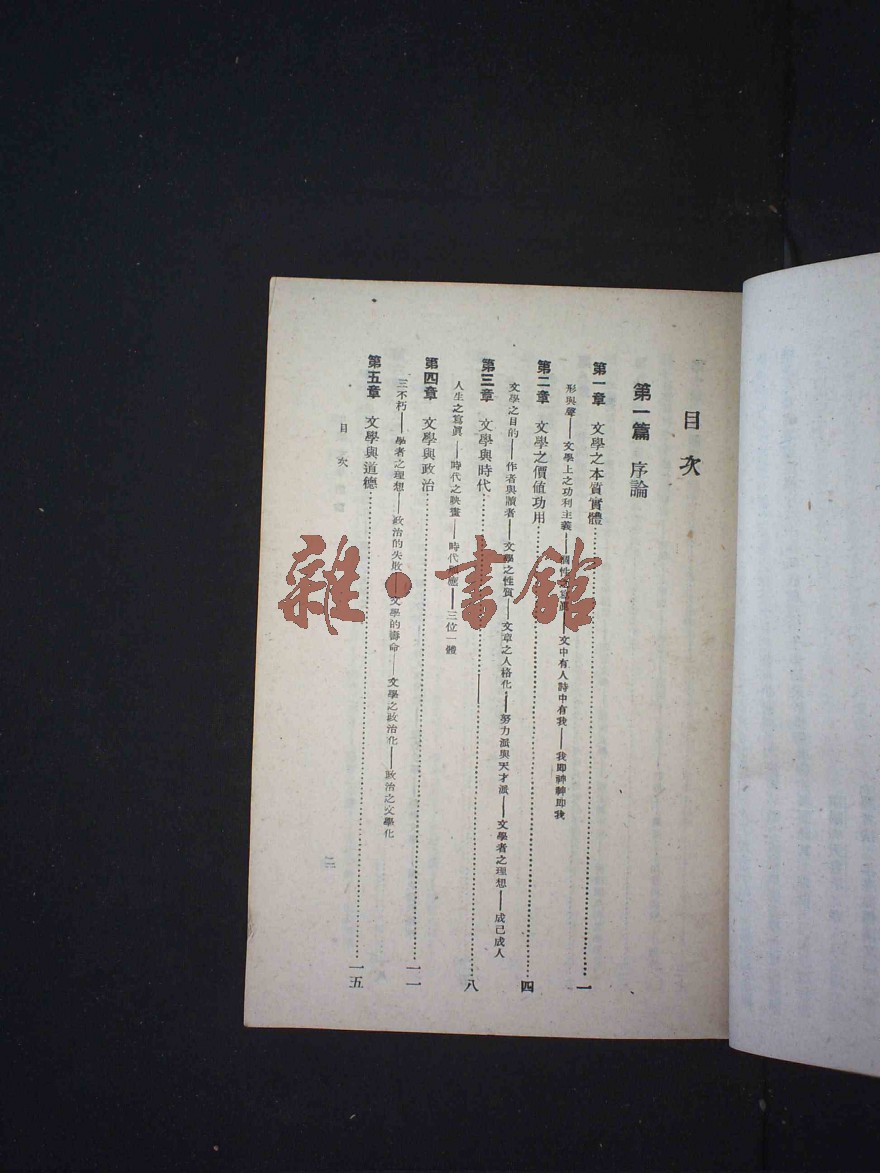 目次
第一篇 序論
第一章 文學之本質實體……一
形與聲——文學上之功利主義——個性之寫眞——文中有人詩中有我——我即神神即我
第二章 文學之價値功用……四
文學之目的——作者與讀者——文學之性質——文章之人格化——努力派與天才派——文學者之理想——成己成人
第三章 文學與時代……八
人生之寫眞——時代之映畫——時代 應——三位一體
第四章 文學與政治……一一
三不朽——學者之理想——政治的失敗——文學的壽命——文學之政治化——政治之文學化
第五章 文學與道德……一五
目次
雜·書館